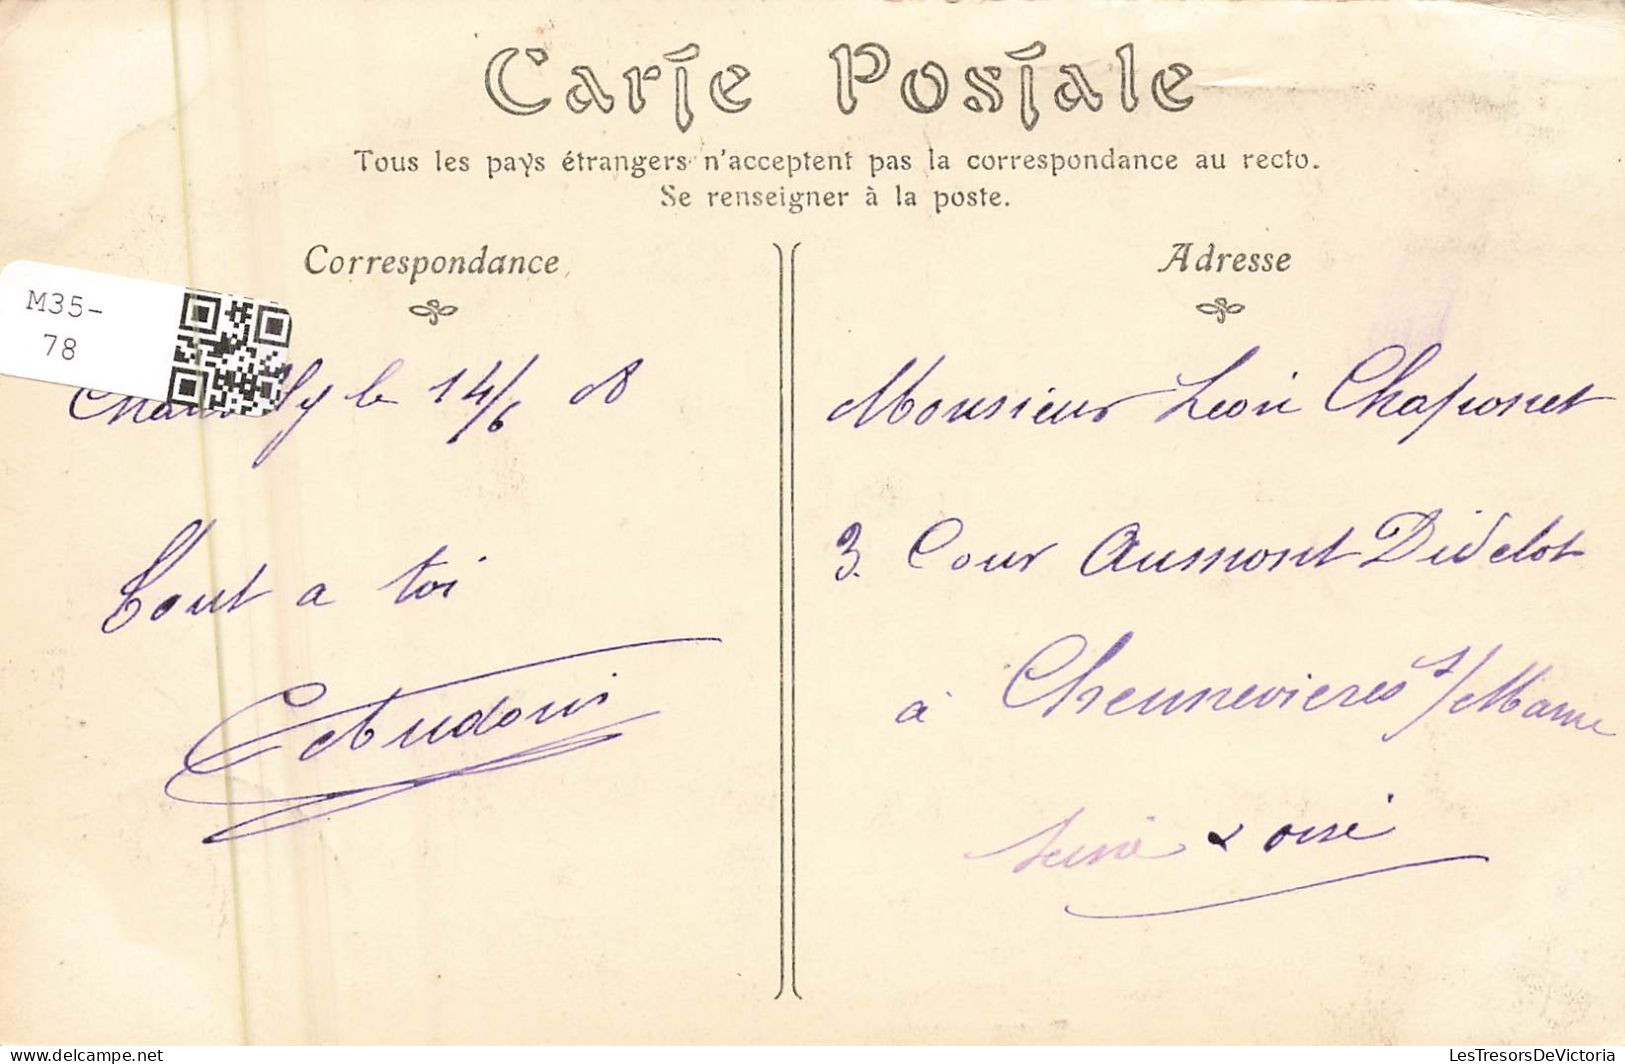 Carte Postale
Tous les pays étrangers n'acceptent pas la correspondance au recto.
Se renseigner à la poste.
Correspondance
Adresse
M35-
78
le 14/6 08
Tout a toi
Monsieur Léon Chaponet
3. Cour Aumont Didelot
à Chennevieres s/Marne
Seine & oise
LesTresorsDeVictoria
LesTresorsDeVictoria.com